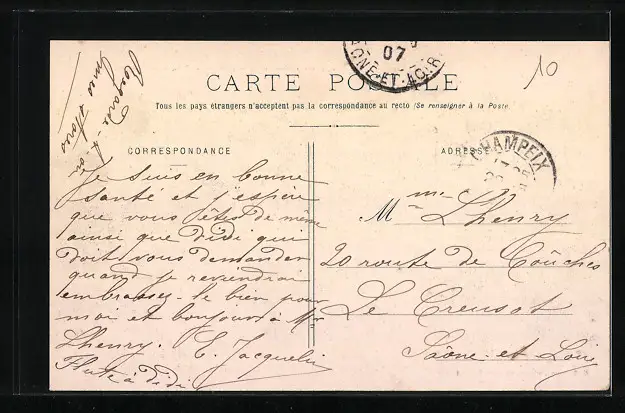 07
SAONE-ET-LOIRE
10
CARTE POSTALE
Tous les pays étrangers n'acceptent pas la correspondance au recto (Se renseigner à la Poste
CORRESPONDANCE
ADRESSE
CHAMPEIX
Je suis en bonne
santé et j'espère
que vous êtes de même
ainsi que Didi qui
doit vous demander
quand je reviendrai
embrassez-le bien pour
moi et bonjour à Mr
Lhenry. E. Jacquelin
Flute à Didi
Mme Lhenry
20 route de Couches
Le Creusot
Saône-et-Loire